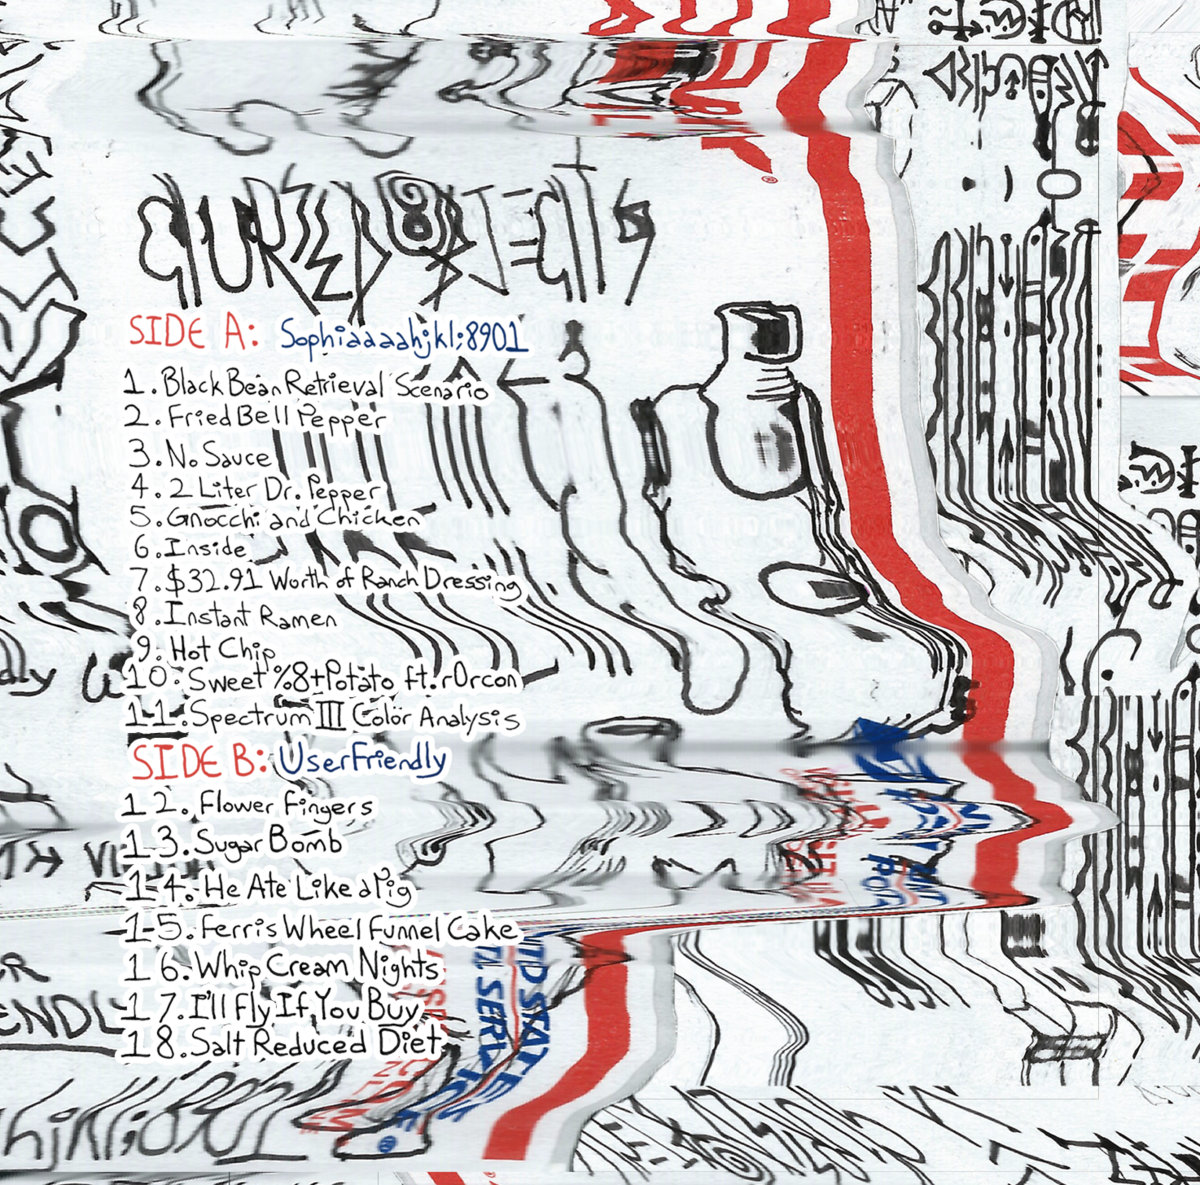 SIDE A: Sophiaaaahjkl;8901
1. Black Bean Retrieval Scenario
2. Fried Bell Pepper
3. No Sauce
4. 2 Liter Dr. Pepper
5. Gnocchi and Chicken
6. Inside
7. $32.91 Worth of Ranch Dressing
8. Instant Ramen
9. Hot Chip
10. Sweet %8+Potato ft. r0rcon
11. Spectrum III Color Analysis
SIDE B: UserFriendly
12. Flower Fingers
13. Sugar Bomb
14. He Ate Like a Pig
15. Ferris Wheel Funnel Cake
16. Whip Cream Nights
17. I'll Fly If You Buy
18. Salt Reduced Diet